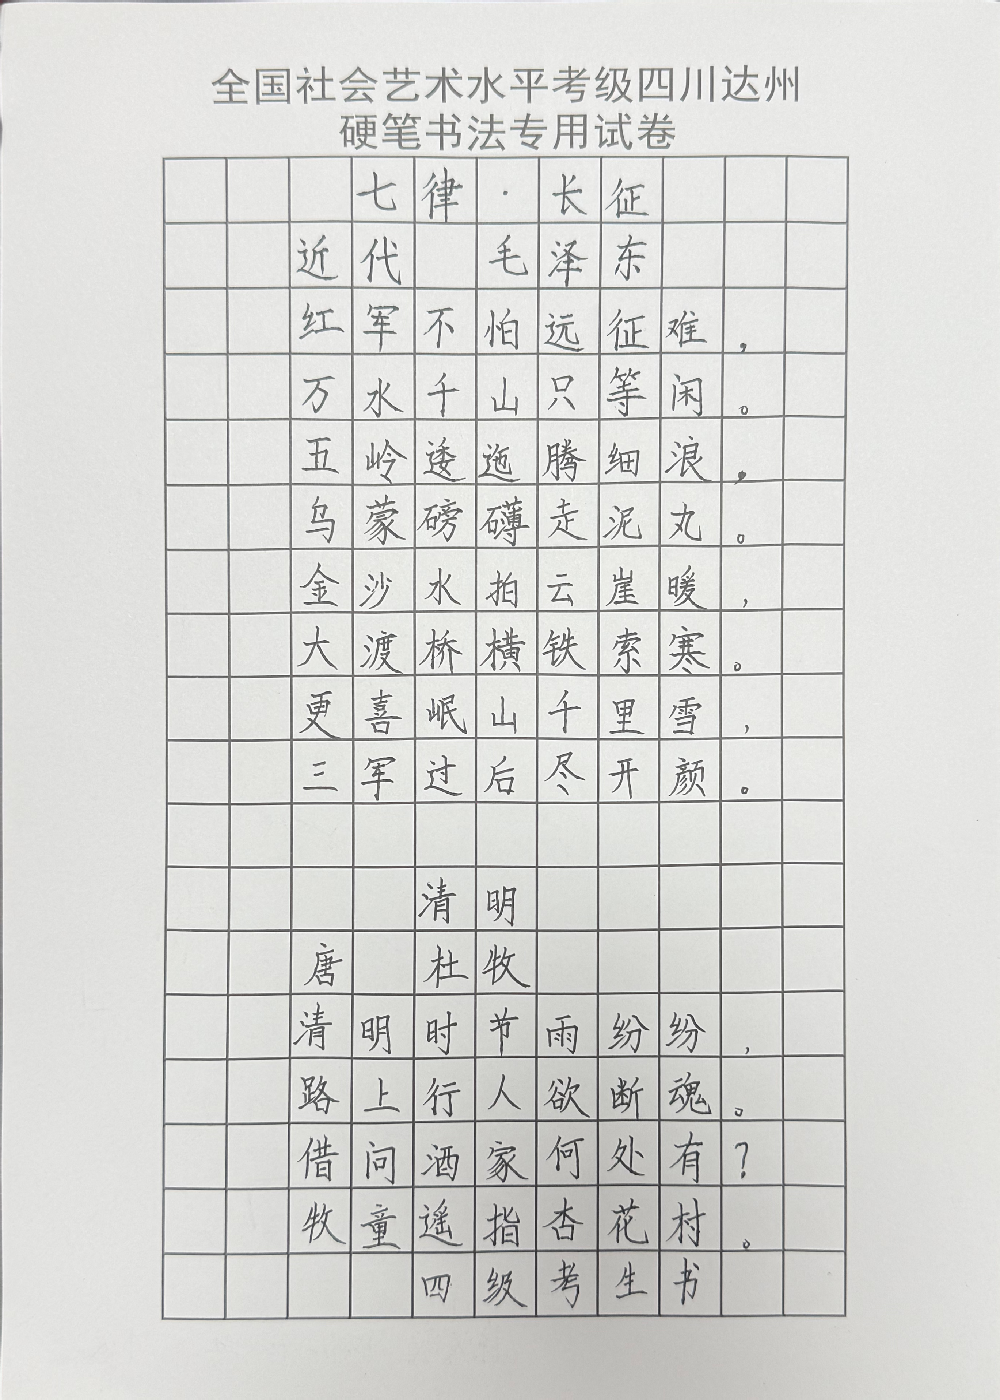 全国社会艺术水平考级四川达州
硬笔书法专用试卷
七律·长征
近代 毛泽东
红军不怕远征难，
万水千山只等闲。
五岭逶迤腾细浪，
乌蒙磅礴走泥丸。
金沙水拍云崖暖，
大渡桥横铁索寒。
更喜岷山千里雪，
三军过后尽开颜。
清明
唐 杜牧
清明时节雨纷纷，
路上行人欲断魂。
借问酒家何处有？
牧童遥指杏花村。
四级考生书